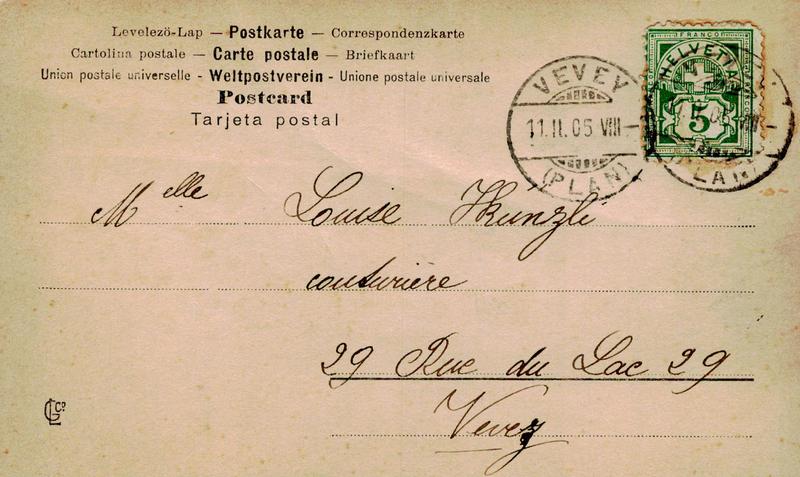 Levelezö-Lap – Postkarte – Correspondenzkarte
Cartolina postale – Carte postale – Briefkaart
Union postale universelle - Weltpostverein - Unione postale universale
Postcard
Tarjeta postal
FRANCO
HELVETIA
5
VEVEY
11.II.05 VIII
(PLAN)
Melle Louise Künzli
couturière
29 Rue du Lac 29
Vevey